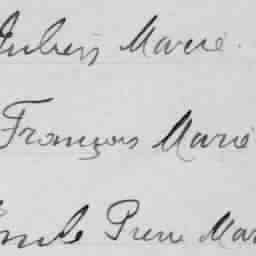 Julien Marie.
François Marie
Emile Pierre Mar